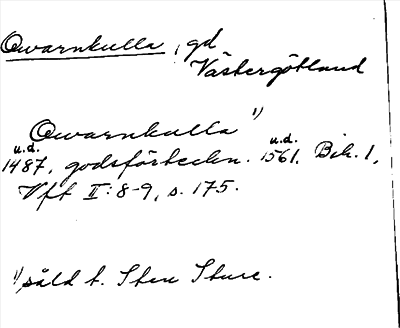 Qwarnkulla, gd
Västergötland
Qwarnkulla 1)
u.d. u.d.
1487, godsförteckn. 1561, Bih. 1,
Vft II:8-9, s. 175.
1) såld t. Sten Sture.